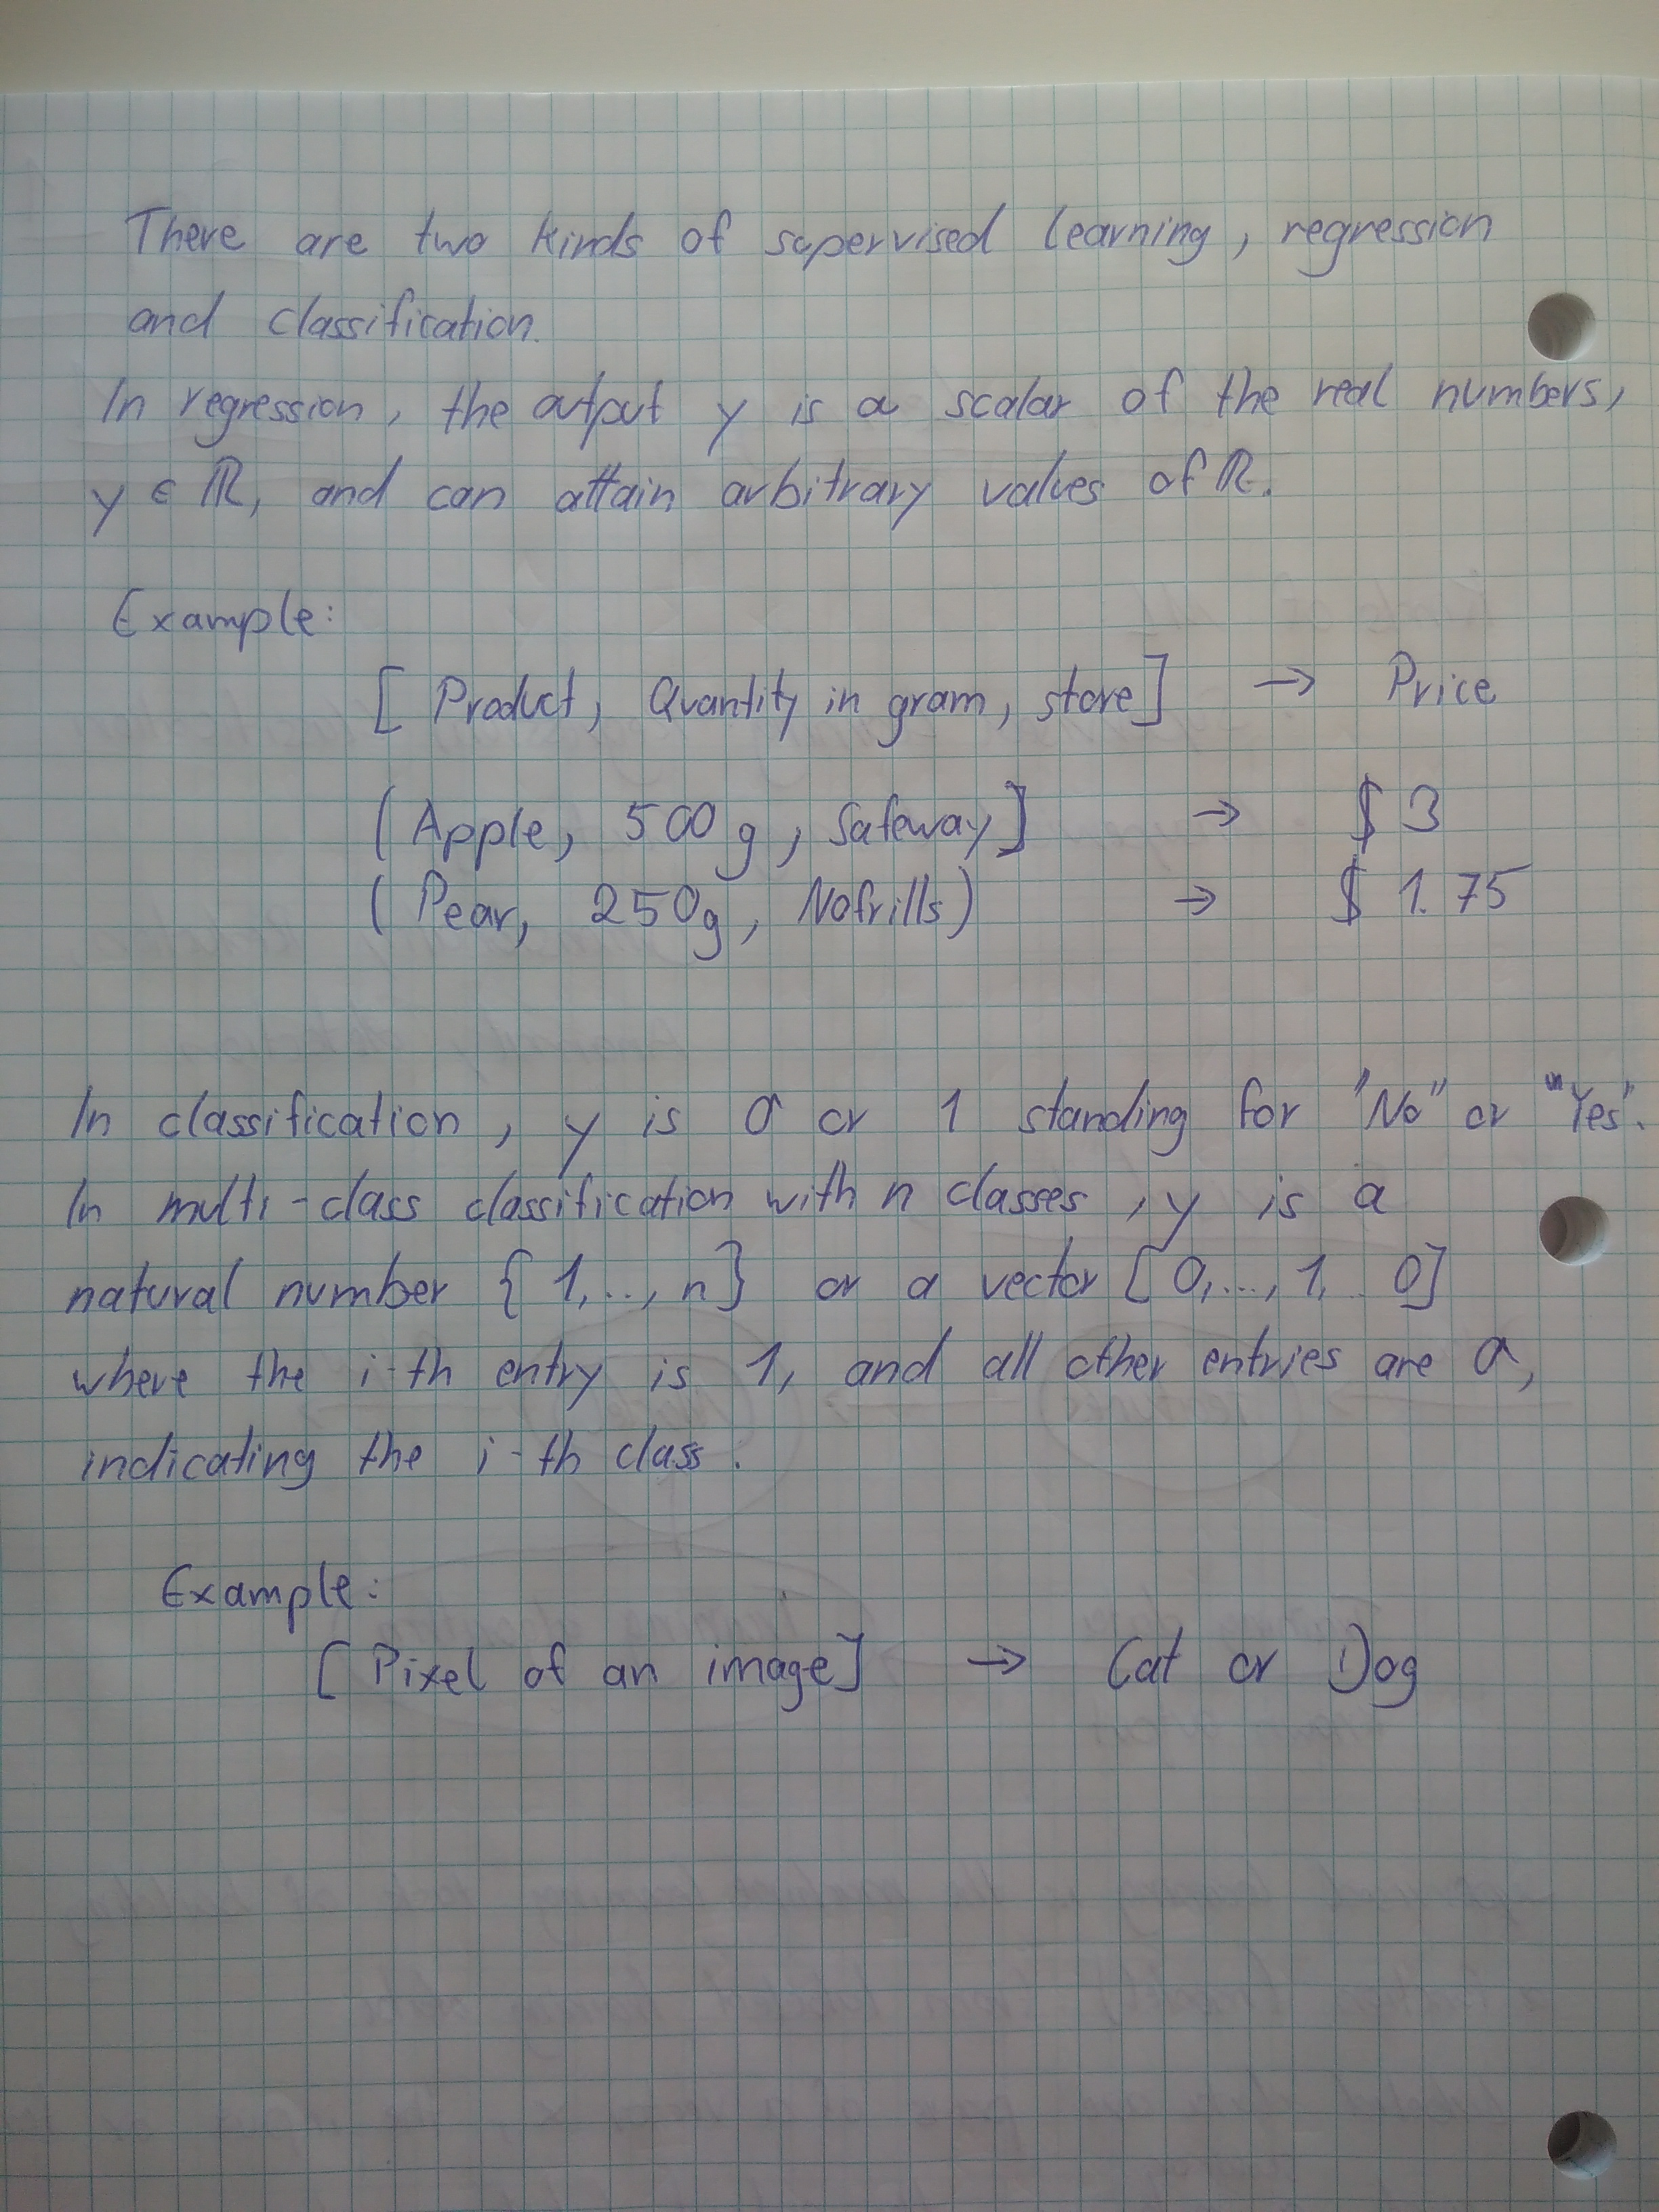 There are two kinds of supervised learning, regression
and classification.
In regression, the output y is a scalar of the real numbers,
y ∈ ℝ, and can attain arbitrary values of ℝ.
Example:
[ Product, Quantity in gram, store] → Price
( Apple, 500 g, Safeway] → $ 3
( Pear, 250g, Nofrills) → $ 1.75
In classification, y is 0 or 1 standing for "No" or "Yes".
In multi-class classification with n classes, y is a
natural number { 1,..., n} or a vector [ 0,..., 1,.. 0]
where the i-th entry is 1, and all other entries are 0,
indicating the i-th class.
Example:
[ Pixel of an image] → Cat or Dog